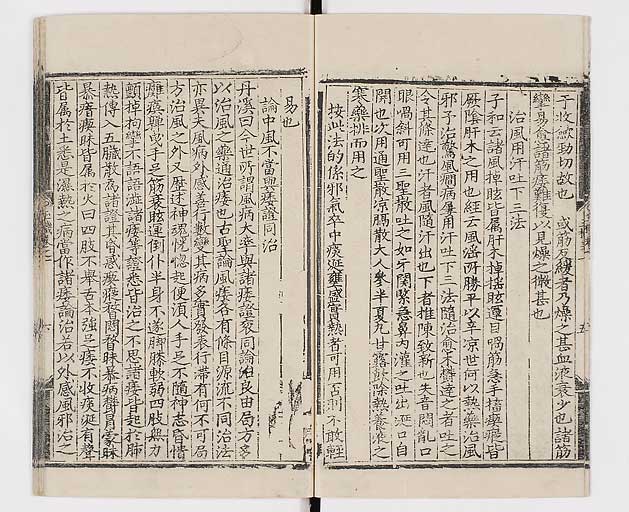 于收歛勁切故也　或筋反緩者乃燥之甚血液衰少也諸筋
變易愈諸風癱瘓難復以見燥之微甚也
治風用汗吐下三法
子和云諸風掉眩皆屬肝木掉搖眩運目喎筋急手搐瘈瘲皆
厥陰肝木之用也經云風淫所勝平以辛凉世何以熱藥治風
邪子治驚風癇病屢用汗吐下三法隨治愈
令其條達也汗者風隨汗出也下者推陳致新也失音悶亂口
眼喎斜可用三聖散吐之如牙關緊急鼻內灌之吐出涎口自
開也次用通聖散凉膈散大人參半夏丸甘露飲除熱養液之
寒藥排而用之
按此法的係邪氣卒中痰涎壅盛實熱者可用否則不敢輕
易也
論中風不當與痿證同治
丹溪曰今世所謂風病大率與諸痿證衮同論治良由局方多
以治風之藥通治痿也古聖論風痿各有條目源流不同治法
亦異夫風病外感善行數變其病多實發表行滯有何不可局
方治風之外又歷述神魂恍惚起便須人手足不隨神志昏憒
癱瘓嚲曳手足筋衰眩運倒仆半身不遂脚膝軟弱四肢無力
顫掉拘攣不語語澁諸痿等證悉皆治之不思諸痿皆起於肺
熱傳入五臟散為諸證其昏惑瘈瘲瞀悶瞀昧暴病鬱冒蒙昧
暴瘖瘈昧皆屬於火曰四肢不舉舌本強足痿不收痰涎有聲
皆屬於土悉是濕熱之病當作諸痿論治若以外感風邪治之